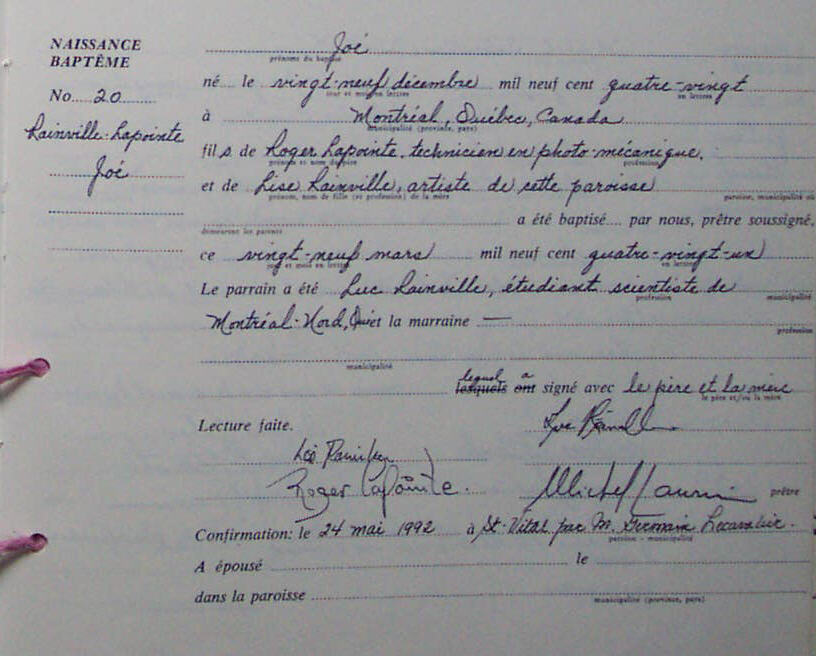 NAISSANCE
BAPTÊME
No 20
Rainville-Lapointe
Joé
Joé
prénoms du baptisé
né le vingt-neuf décembre mil neuf cent quatre-vingt
jour et mois en lettres en lettres
à Montréal, Québec, Canada
municipalité (province, pays)
fils de Roger Lapointe, technicien en photo-mécanique,
prénom et nom du père profession
et de Lise Rainville, artiste de cette paroisse
prénom, nom de fille (et profession) de la mère paroisse, municipalité où
a été baptisé par nous, prêtre soussigné,
demeurent les parents
ce vingt-neuf mars mil neuf cent quatre-vingt-un
jour et mois en lettres en lettres
Le parrain a été Luc Rainville, étudiant scientiste de
profession municipalité
Montréal-Nord, Qué et la marraine —
profession
municipalité
lequel a
lesquels ont signé avec le père et la mère
le père et/ou la mère
Lecture faite.
Roger Lapointe.
Michel prêtre
Confirmation: le 24 mai 1992 à St-Vital par M. Germain Lecavalier.
paroisse - municipalité
A épousé le
dans la paroisse
municipalité (province, pays)